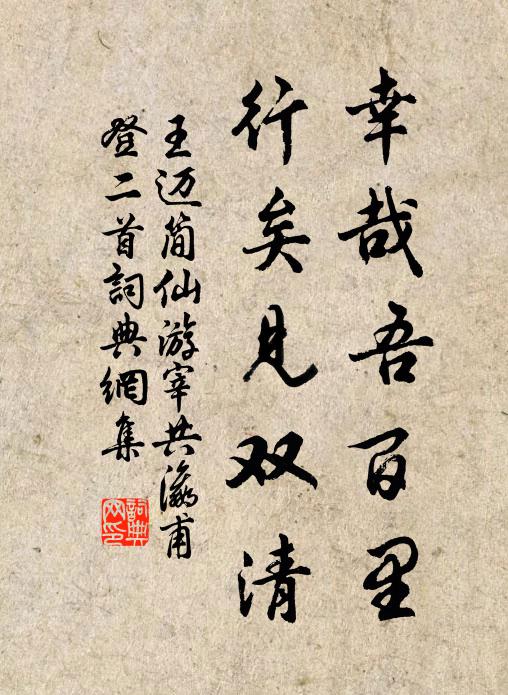 幸哉吾百里
行矣见双清
王迈简仙游宰共瀛甫
登二首詞典網集
詞典
网印